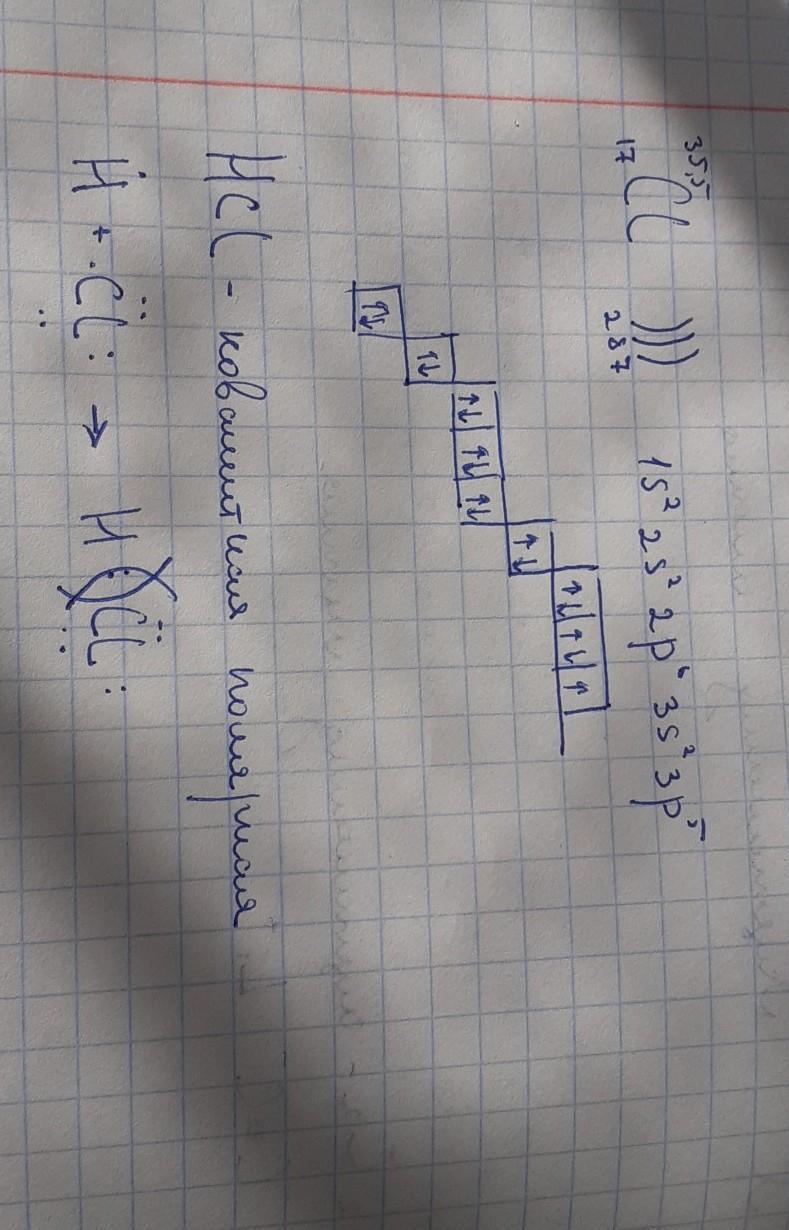 35,5
17 Cl ))) 1s² 2s² 2p⁶ 3s² 3p⁵
2 8 7
↑↓ ↑↓ ↑
↑↓
↑↓ ↑↓ ↑↓
↑↓
↑↓
HCl - ковалентная полярная
H· + ·Cl: → H:Cl: